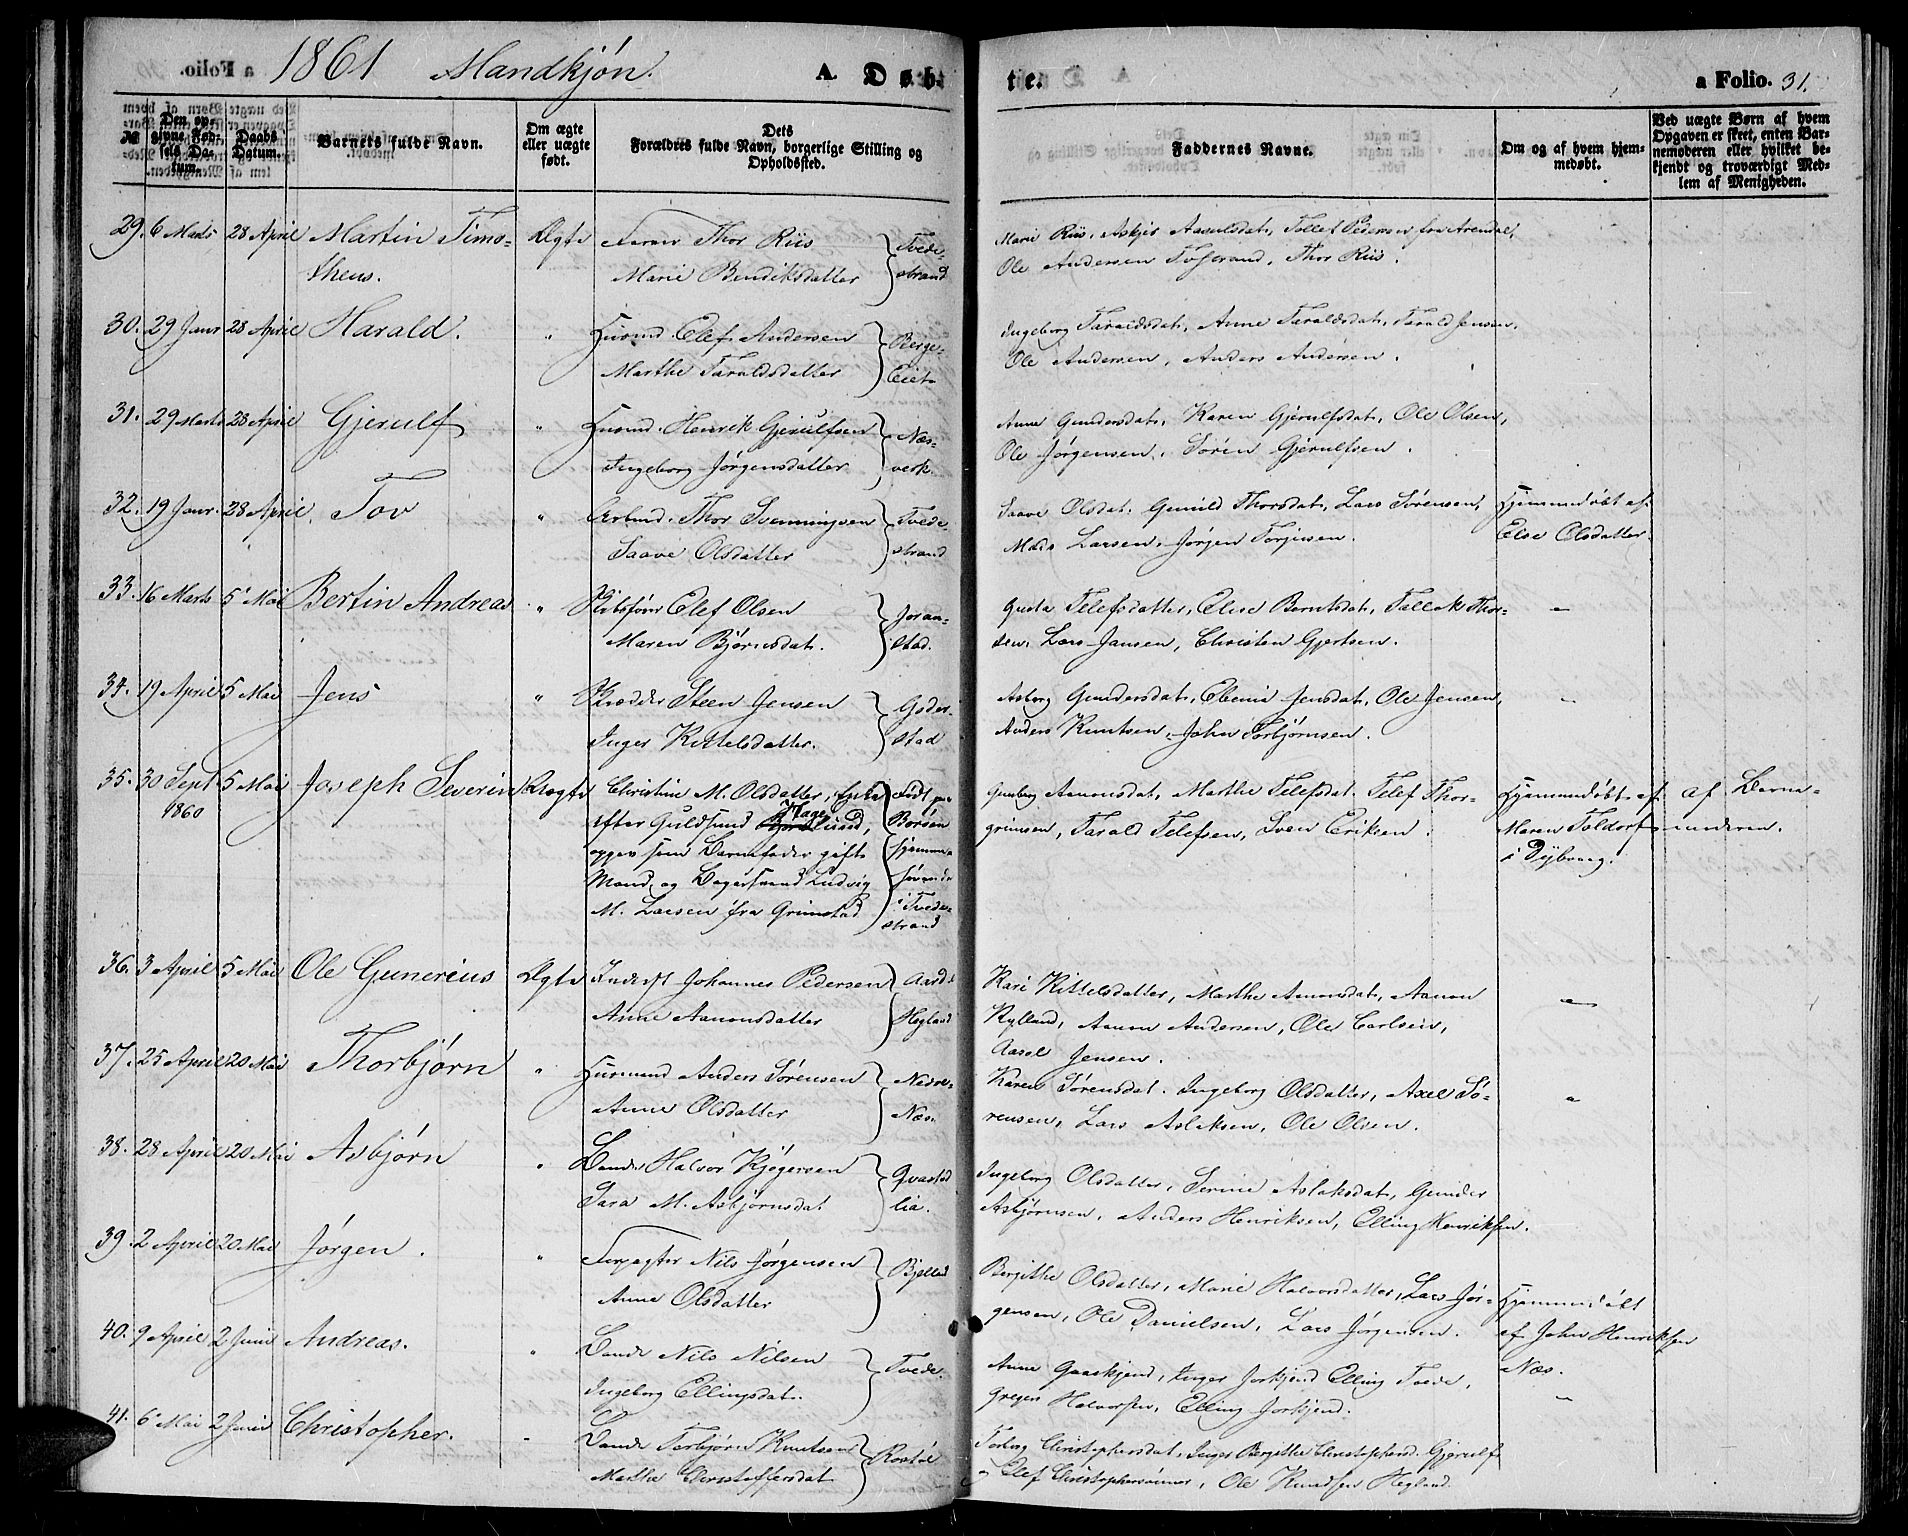 1861 Mandkjøn. A. Døb-
te. a Folio. 31.
№ Den opgivne Fødsels Datum. Daabs Datum. Barnets fulde Navn. Om ægte eller uægte født. Dets Forældres fulde Navn, borgerlige Stilling og Opholdssted. Faddernes Navne. Om og af hvem hjemmedøbt. Ved uægte Børn af hvem Opgaven er skeet, enten Barnemoderen eller hvilket bekjendt og troværdigt Medlem af Menigheden.
29. 6 Marts 28 April Martin Timo- Ægte Thor Riis Tvede- Marie Riis, Askjer Aanulsdat, Tollef Pedersen fra Arendal,
theus. Marie Bendiksdatter strand Ole Andersen Thor Riis.
30. 29 Janr 28 April Harald. " Husmd. Elef Andersen Berge- Ingeborg Taraldsdat, Anne Taraldsdat, Tarald Jensen,
Marthe Taraldsdatter Eiet Ole Andersen, Anders Andersen.
31. 29 Marts 28 April Gjerulf " Husmd. Henrik Gjerulfsen Næs- Anne Gundersdat, Karen Gjerulfsdat, Ole Olsen,
Ingeborg Jørgensdatter verk. Ole Jørgensen, Søren Gjerulfsen.
32. 19 Janr. 28 April Tov " Arbmd. Thor Svenningsen Tvede- Saave Olsdat. Gunild Thorsdat, Lars Sørensen, Hjemmedøbt af
Saave Olsdatter strand Mads Larsen, Jørgen Torjusen. Else Olsdatter.
33. 16 Marts 5 Mai Bertin Andreas " Skibsfører Elef Olsen Joran- Gusta Telefsdatter, Elise Berntsdat, Tallak Thor-
Maren Bjørnsdat. stad. sen, Lars Jansen, Christen Gjertsen.
34. 19 April 5 Mai Jens " Steen Jensen Goder- Asborg Gundersdat, Jensdat, Ole Jensen,
Inger Kittelsdatter. stad Anders Knutsen, John Torbjørnsen.
35. 30 Sept 5 Mai Joseph Severin Uægte Christine M. Olsdatter, Enke Født paa Gunborg Aanonsdat, Marthe Telefsdat. Telef Thor- Hjemmedøbt af af Barne-
1860 efter Guldsmd Flage Borøen grimsen, Tarald Telefsen, Sven Eriksen. Maren Toldorf moderen.
opgev som Barnefader gift hjemme- i Dybvaag.
Mand, og Ludvig hørende
M. Larsen fra Grimstad i Tvede-
strand
36. 3 April 5 Mai Ole Gunerius Ægte Inderst Johannes Pedersen Kari Kittelsdatter, Marthe Aanonsdat, Aanon
Anne Aanonsdatter Hegland Rylland, Aanon Andersen, Ole Carlsen,
Aasol Jensen.
37. 25 April 20 Mai Thorbjørn " Husmand Anders Sørensen Nedre- Karen Sørensdat. Ingeborg Olsdatter, Axel Sø-
Anne Olsdatter Næs. rensen, Lars Aslaksen, Ole Olsen.
38. 28 April 20 Mai Asbjørn " Bonde Halvor Kjøgersen Qvastad Ingeborg Olsdatter, Serine Aslaksdat, Gunder
Sara M. Asbjørnsdat lia. Asbjørnsen, Anders Henriksen, Elling Henriksen.
39. 2 April 20 Mai Jørgen. " Forpagter Nils Jørgensen Bjelland Bergithe Olsdatter, Marie Halvorsdatter, Lars Jør- Hjemmedøbt
Anne Olsdatter gensen, Ole Danielsen, Lars Jørgensen. af John Henriksen
40. 9 April 2 Juni Andreas. " Bonde Nils Nilsen Tvede. Anne Gaaskjend, Inger Jorkjend Elling Tvede, Næs.
Ingeborg Ellingsdat. Greger Halvorsen, Elling Jorkjend.
41. 6 Mai 2 Juni Christopher. Bonde Torbjørn Knutsen Rostøl Torborg Christophersdat, Inger Bergithe Christophersd. Gjerulf
Marthe Christoffersdat og Elef Christophersønner, Ole Knudsen Hegland.